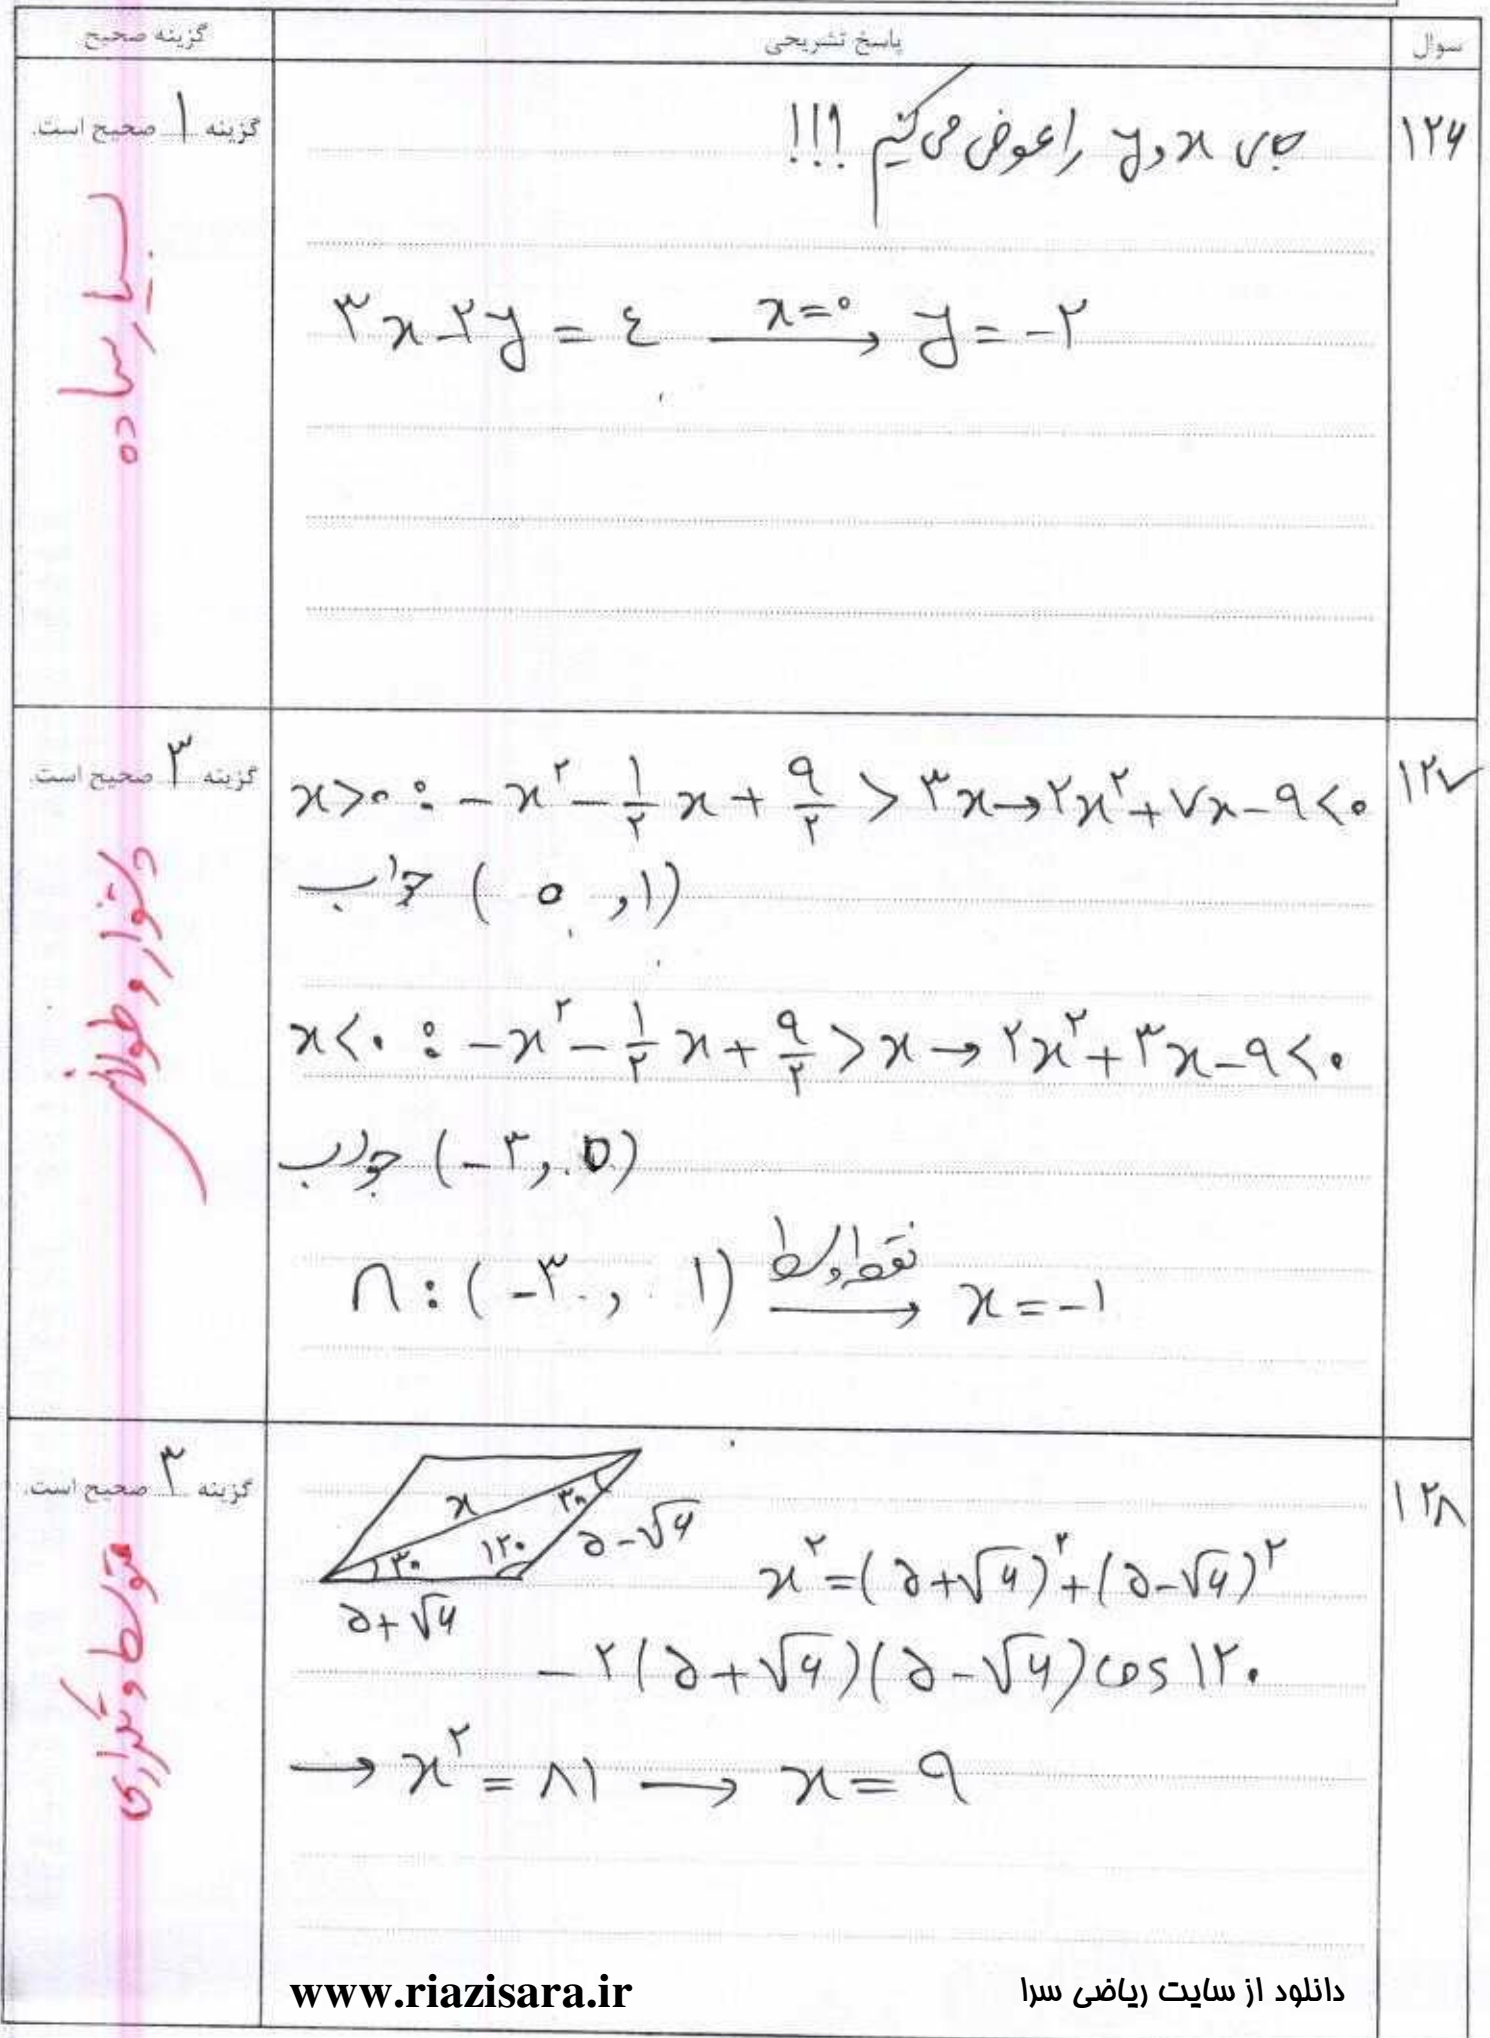 سوال
پاسخ تشریحی
گزینه صحیح
۱۲۶
جای x و y را عوض می‌کنیم !!!
۳x-۲y = ٤ x=۰ → y = -۲
گزینه ۱ صحیح است.
بسیار ساده
۱۲۷
x>۰ : -x^۲ - ۱/۲ x + ۹/۲ > ۳x → ۲x^۲ + ۷x - ۹ < ۰
(۰ , ۱) جواب
x<۰ : -x^۲ - ۱/۲ x + ۹/۲ > x → ۲x^۲ + ۳x - ۹ < ۰
(-۳ , ۰) جواب
∩ : (-۳ , ۱) نقطه وسط → x = -۱
گزینه ۳ صحیح است.
دشوار و طولانی
۱۲۸
x
۳۰
۳۰
۱۲۰
۵-√۶
۵+√۶
x^۲ = (۵+√۶)^۲ + (۵-√۶)^۲
- ۲(۵+√۶)(۵-√۶) cos ۱۲۰
→ x^۲ = ۸۱ → x = ۹
گزینه ۳ صحیح است.
متوسط و تکراری
www.riazisara.ir
دانلود از سایت ریاضی سرا